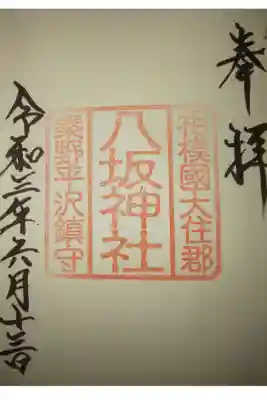 奉拝
相模國大住郡
八坂神社
沢鎮守
令和三年六月十三日